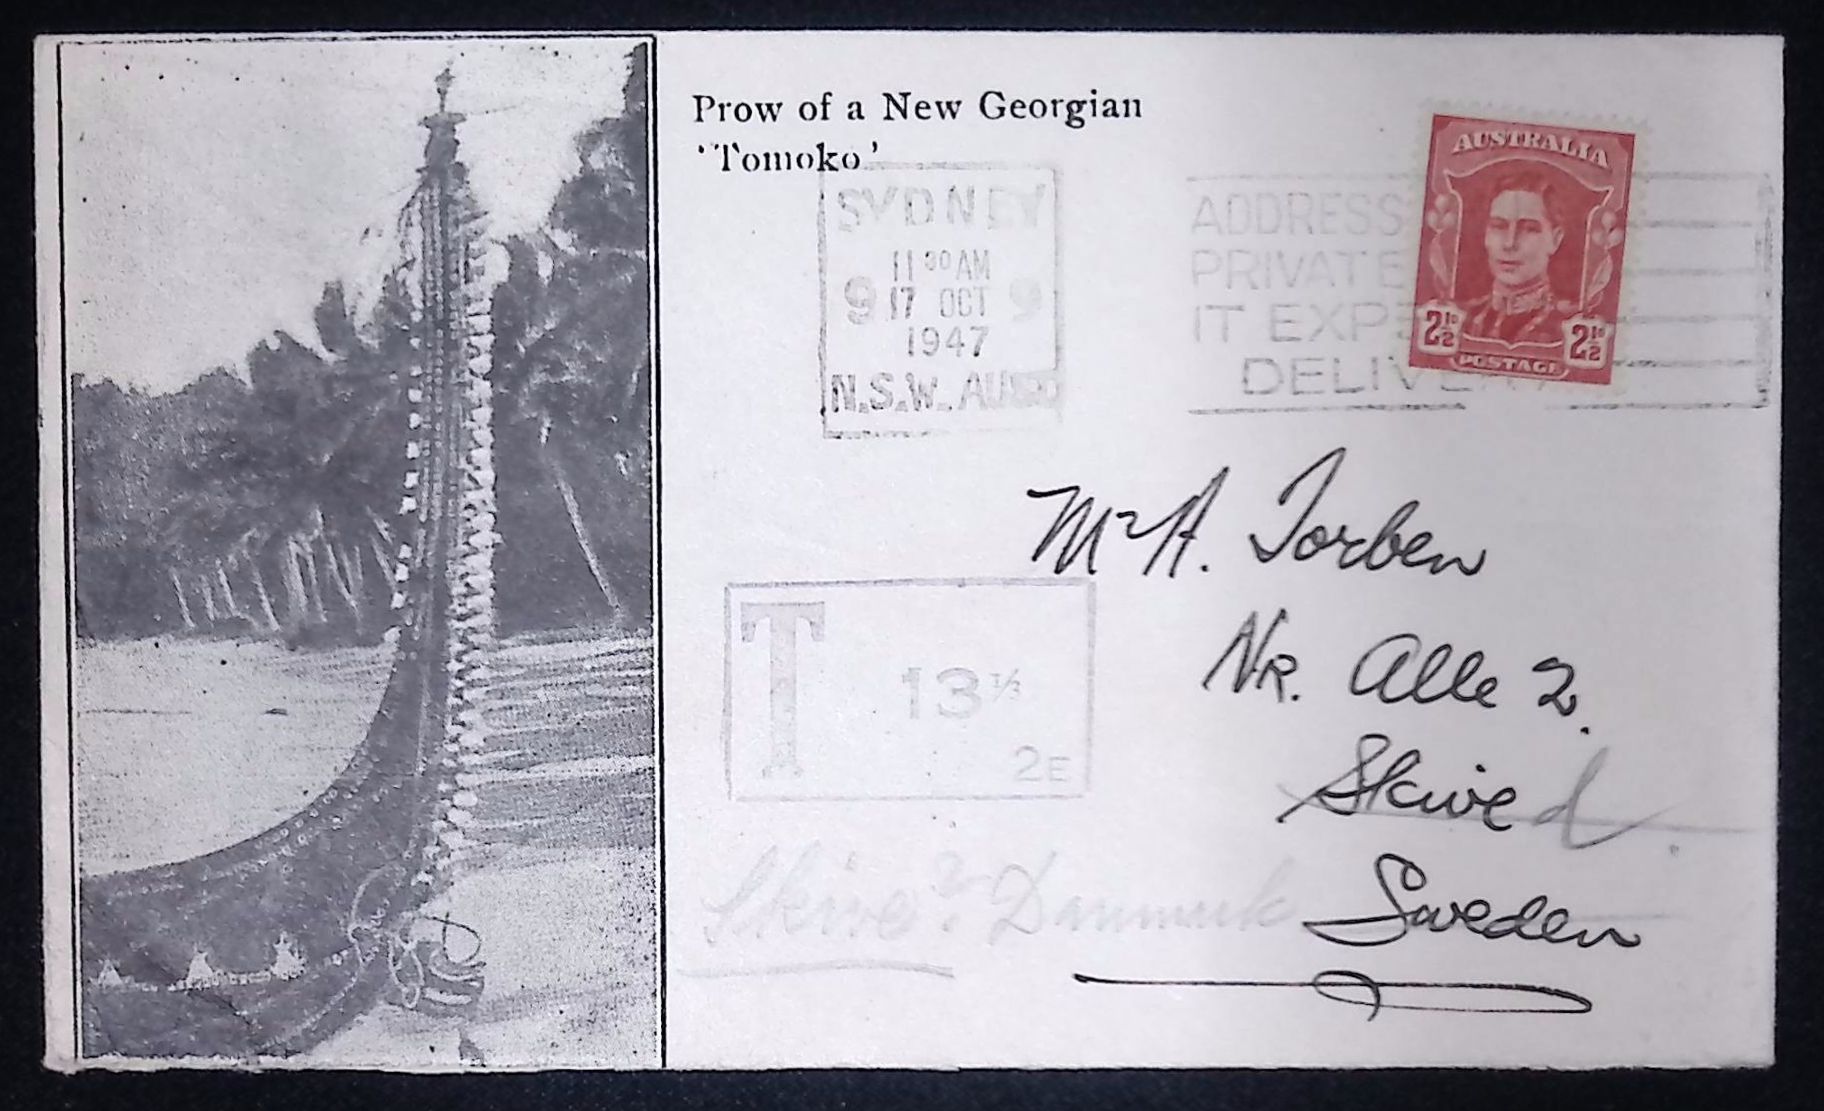 Prow of a New Georgian
'Tomoko'
SYDNEY
11 30 AM
9 17 OCT 9
1947
N.S.W. AUST
ADDRESS
PRIVATE
IT EXP
DELIVERY
AUSTRALIA
2½D 2½D
POSTAGE
Mr A. Torben
Nr. Alle 2.
Skive d
Sweden
T 13 1/3
2E
Skive? Danmark